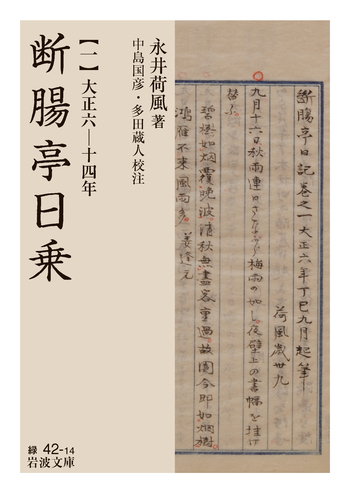 永井荷風著
中島国彦・多田蔵人校注
断腸亭日乗
【一】大正六―十四年
断腸亭日記巻之一大正六年丁巳九月起筆
荷風歳卅九
九月十六日秋雨連日さながら梅雨の如し夜壁上の書幅を挂け
替ふ
碧樹如烟覆晩波清秋無尽客重過故園今即如烟樹
鴻雁不来風雨多 姜逢元
緑 42-14
岩波文庫